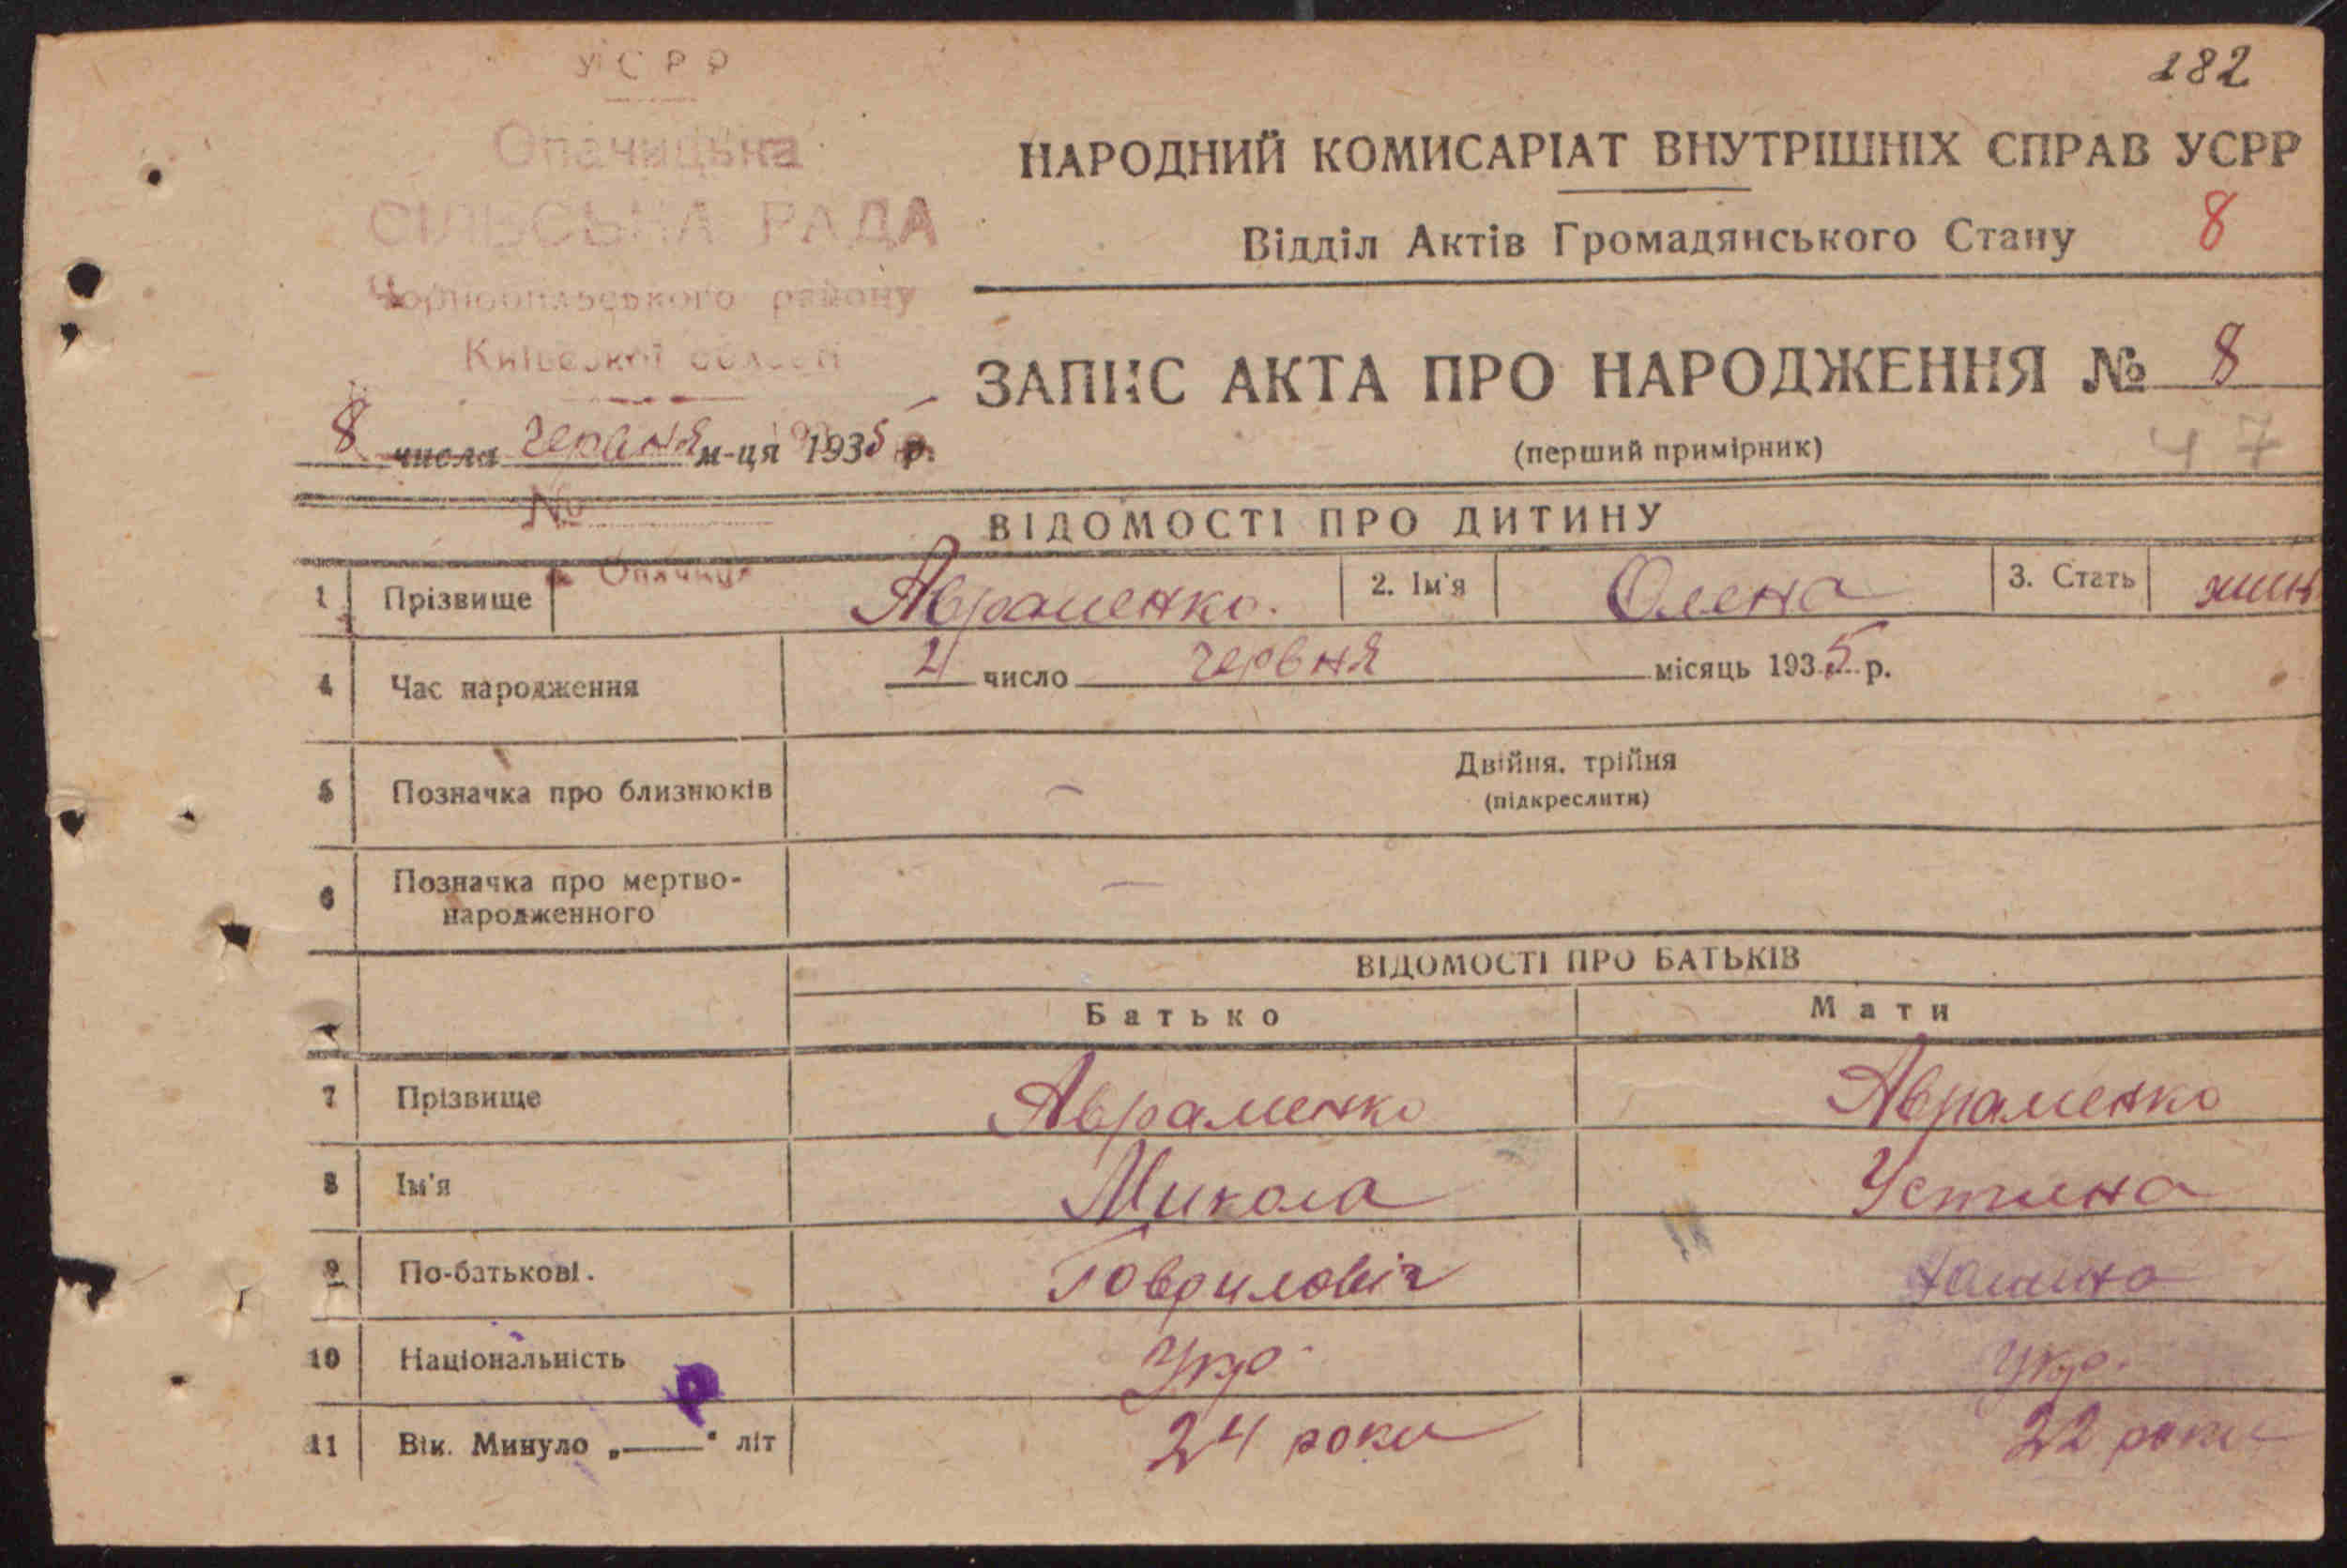 УСРР
182
Опачицька
НАРОДНИЙ КОМИСАРІАТ ВНУТРІШНІХ СПРАВ УСРР
СІЛЬСЬКА РАДА
Відділ Актів Громадянського Стану 8
Чорнобильського району
Київської області
ЗАПИС АКТА ПРО НАРОДЖЕННЯ № 8
8 числа червня м-ця 1935 р.
(перший примірник) 47
№
ВІДОМОСТІ ПРО ДИТИНУ
Опачичі
1 Прізвище Авраменко. 2. Ім'я Олена 3. Стать жін
4 Час народження 4 число червня місяць 1935 р.
5 Позначка про близнюків — Двійня, трійня
(підкреслити)
6 Позначка про мертво-
народженного —
ВІДОМОСТІ ПРО БАТЬКІВ
Батько Мати
7 Прізвище Авраменко Авраменко
8 Ім'я Микола Устина
9 По-батькові. Гаврилович
10 Національність Укр. Укр.
11 Вік. Минуло „——" літ 24 роки 22 роки